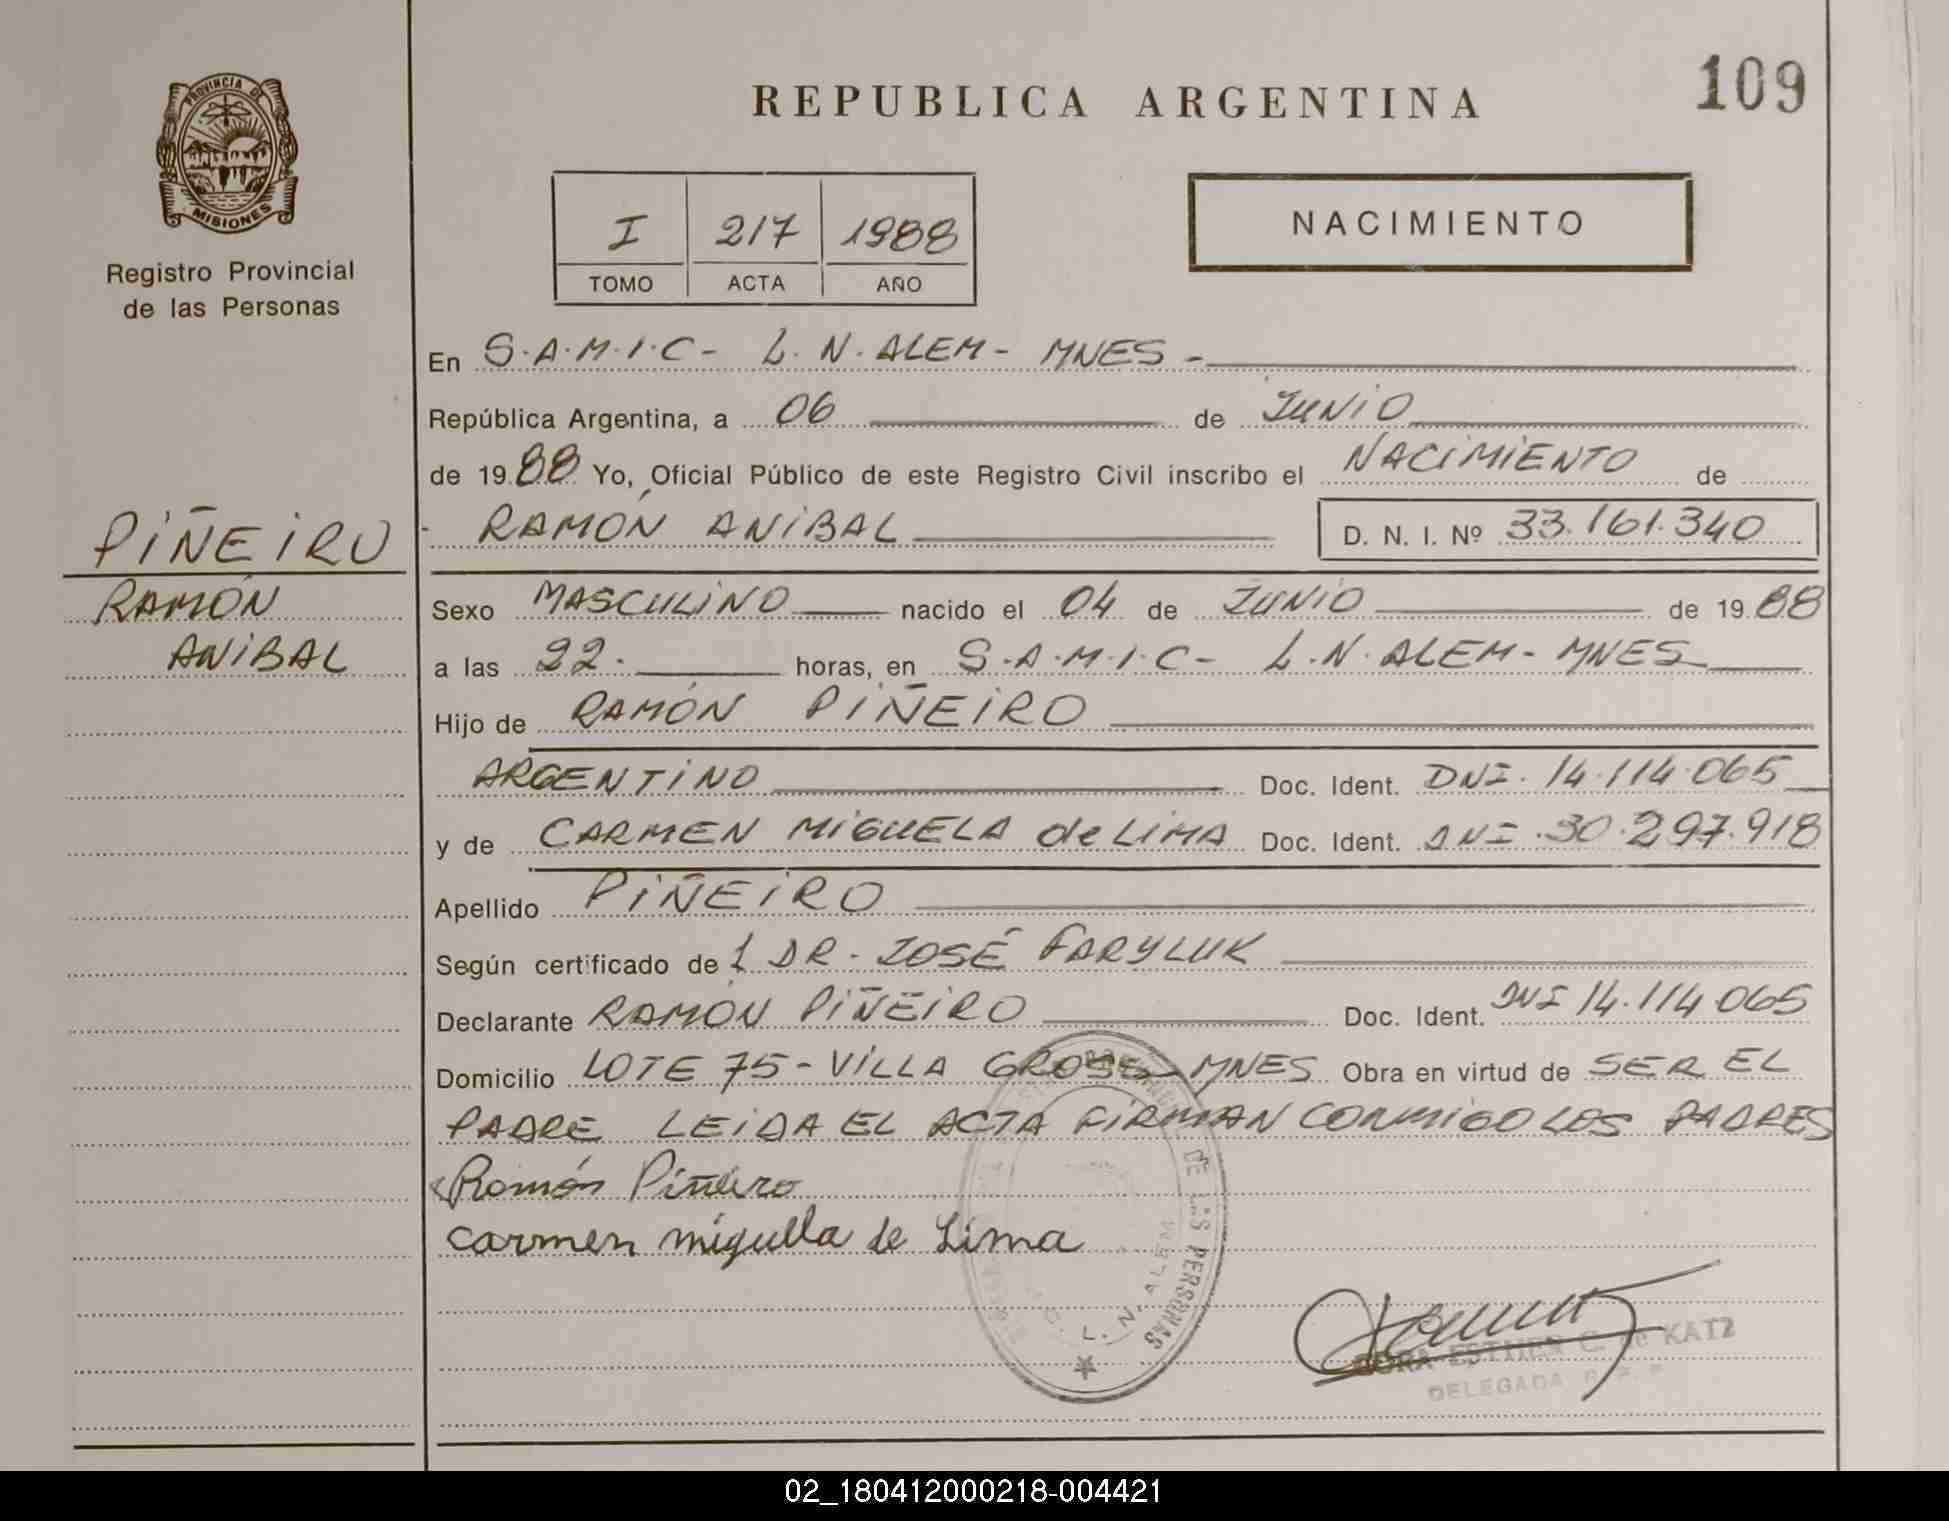 109
REPUBLICA ARGENTINA
PROVINCIA DE
MISIONES
Registro Provincial
de las Personas
I 217 1988
TOMO ACTA AÑO
NACIMIENTO
En S.A.M.I.C- L.N.ALEM- MNES-
República Argentina, a 06 de JUNIO
de 1988 Yo, Oficial Público de este Registro Civil inscribo el NACIMIENTO de
PIÑEIRO
RAMÓN ANIBAL D. N. I. Nº 33.161.340
RAMÓN
ANIBAL
Sexo MASCULINO nacido el 04 de JUNIO de 1988
a las 22. horas, en S.A.M.I.C- L.N.ALEM- MNES
Hijo de RAMÓN PIÑEIRO
ARGENTINO Doc. Ident. DNI. 14.114.065
y de CARMEN MIGUELA de LIMA Doc. Ident. DNI.30.297.918
Apellido PIÑEIRO
Según certificado de 1 DR. JOSÉ FARYLUK
Declarante RAMÓN PIÑEIRO Doc. Ident. DNI 14.114.065
Domicilio LOTE 75- VILLA GROSS MNES Obra en virtud de SER EL
PADRE LEIDA EL ACTA FIRMAN CONMIGO LOS PADRES
Ramón Piñeiro
Carmen miguella de Lima
DE LAS PERSONAS
L. N. ALEM
DORA ESTHER C. de KATZ
DELEGADA R. P. P.
02_180412000218-004421